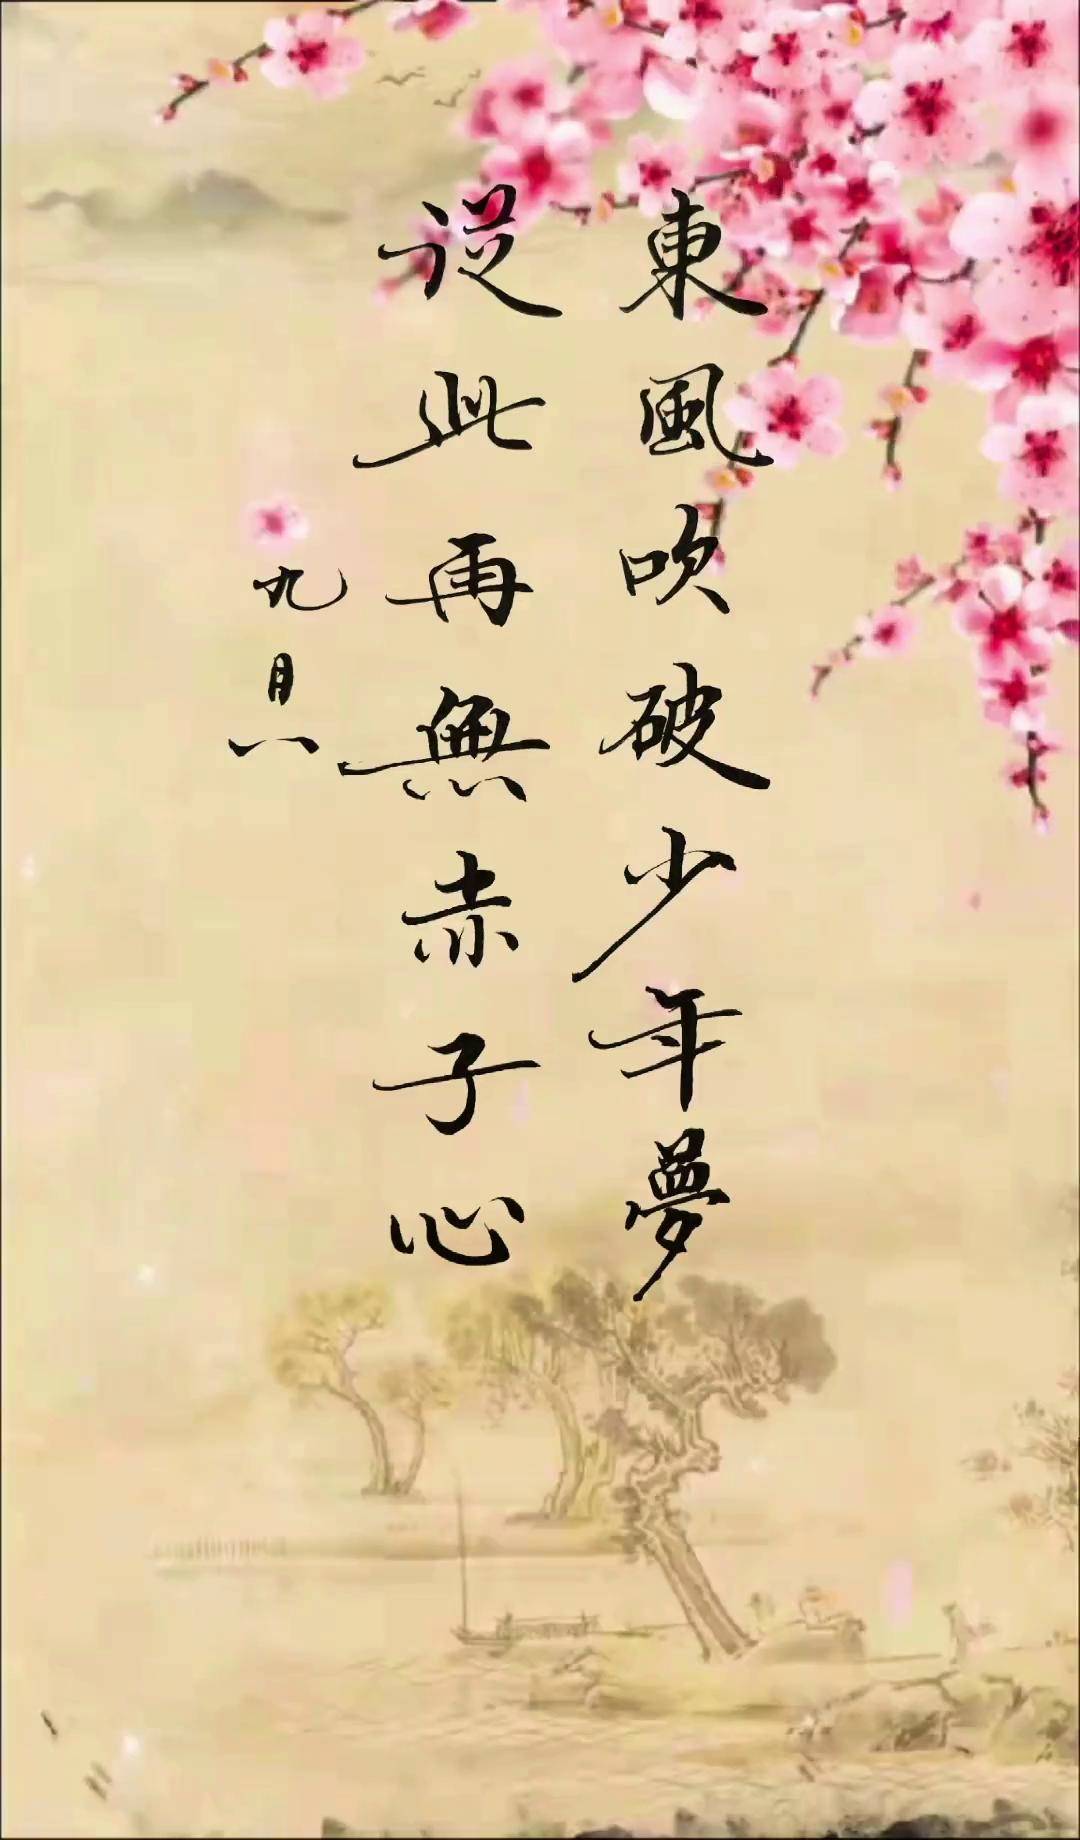 東風吹破少年夢
從此再無赤子心
九月八